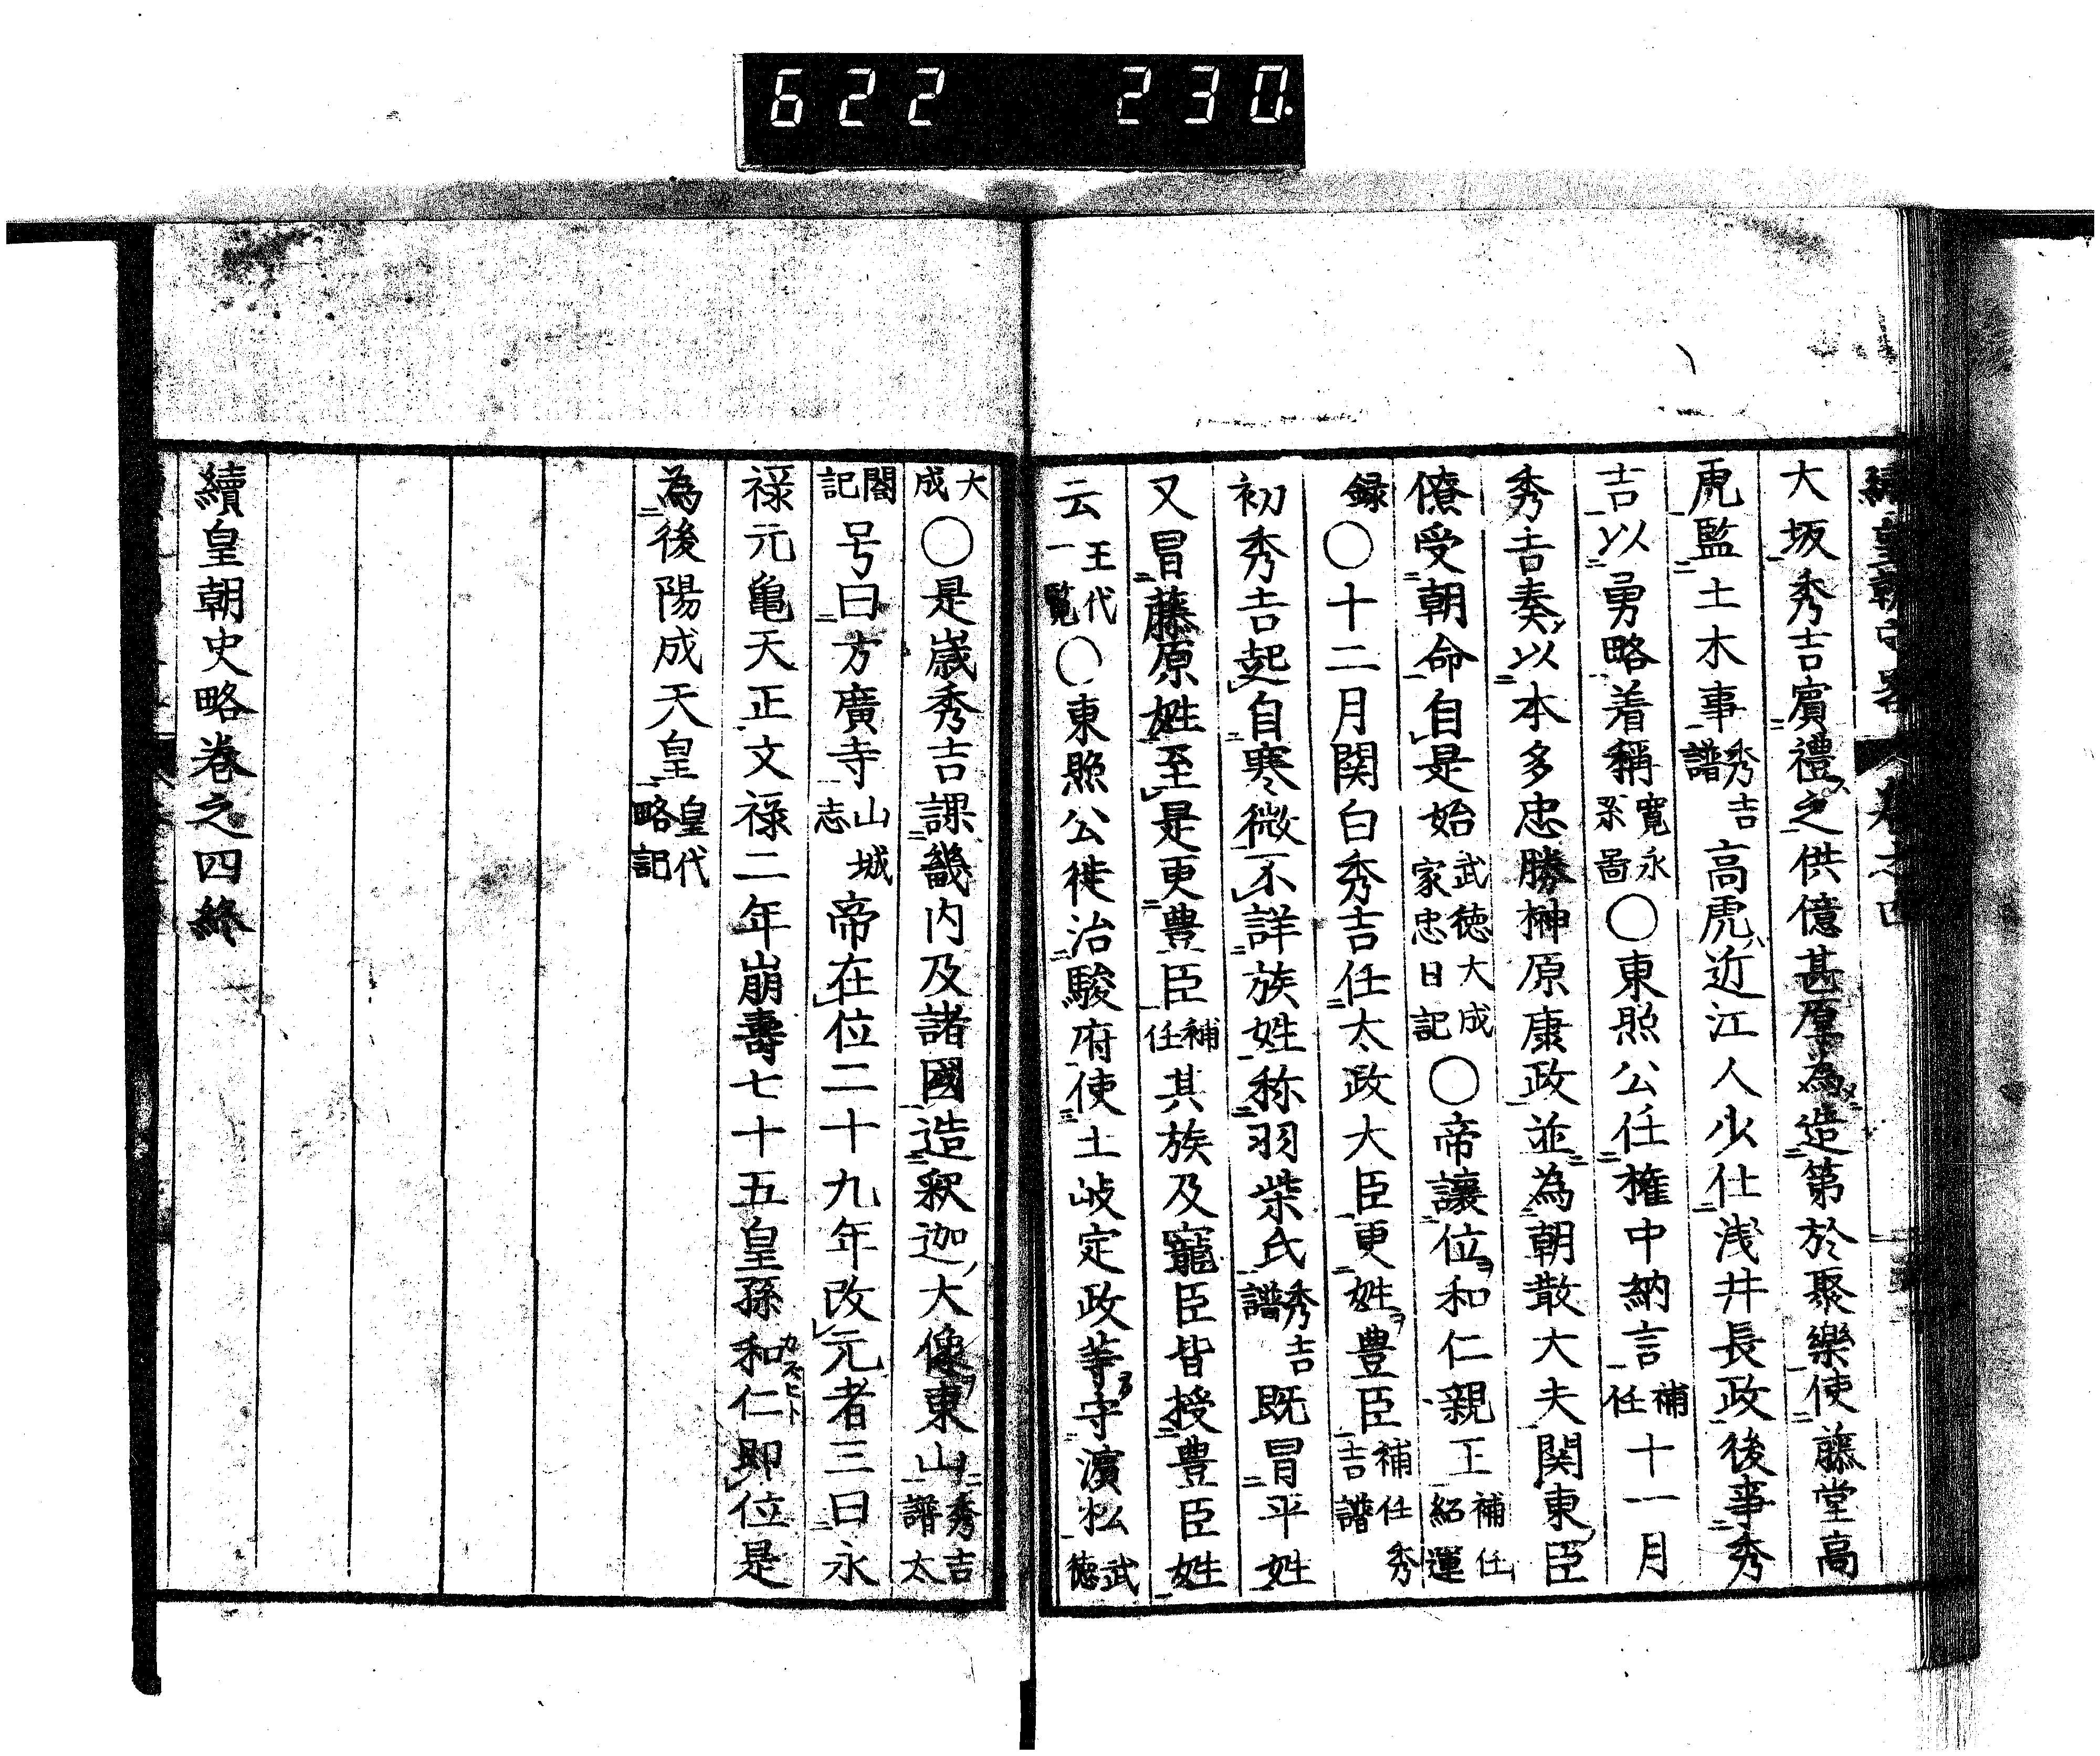 622 230.
續皇朝史略 卷之四
大坂秀吉賓禮之供億甚厚為造第於聚樂使藤堂高
虎監土木事秀吉譜高虎近江人少仕浅井長政後事秀
吉以勇略着稱寛永系圖〇東照公任権中納言補任十一月
秀吉奏以本多忠勝榊原康政並為朝散大夫関東臣
僚受朝命自是始武徳大成家忠日記〇帝讓位和仁親王補任紹運
録〇十二月関白秀吉任太政大臣更姓豊臣補任秀吉譜
初秀吉起自寒微不詳族姓称羽柴氏秀吉譜既冒平姓
又冒藤原姓至是更豊臣補任其族及寵臣皆授豊臣姓
云王代一覧〇東照公徙治駿府使土岐定政等守濱松武徳
大成〇是歳秀吉課畿内及諸國造釈迦大像東山秀吉譜太
閤記号曰方廣寺山城志帝在位二十九年改元者三曰永
禄元亀天正文禄二年崩壽七十五皇孫和仁即位是
為後陽成天皇皇代略記
續皇朝史略卷之四終